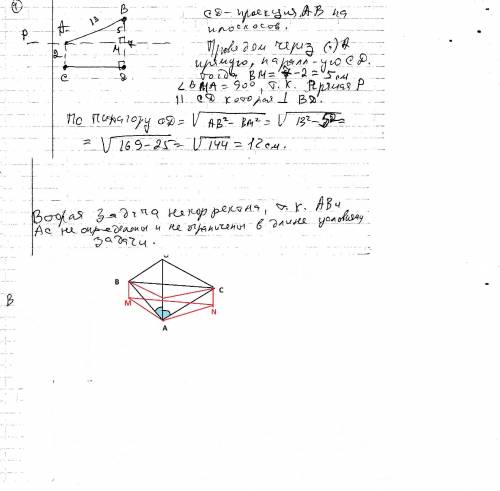 1
13
B
A
5
P
M
7
2
C
D
CD - проекция AB на
плоскость.
Проведём через (·) A
прямую, паралл-ую CD.
тогда BM = 7-2 = 5 см
∠BMA = 90°, т.к. прямая P
|| CD которая ⊥ BD.
По Пифагору CD = √AB² - BM² = √13² - 5² =
= √169-25 = √144 = 12 см.
Вторая задача некорректна, т.к. AB и
AC не определены и не ограничены в длине условиями
задачи.
B
B
C
M
N
A